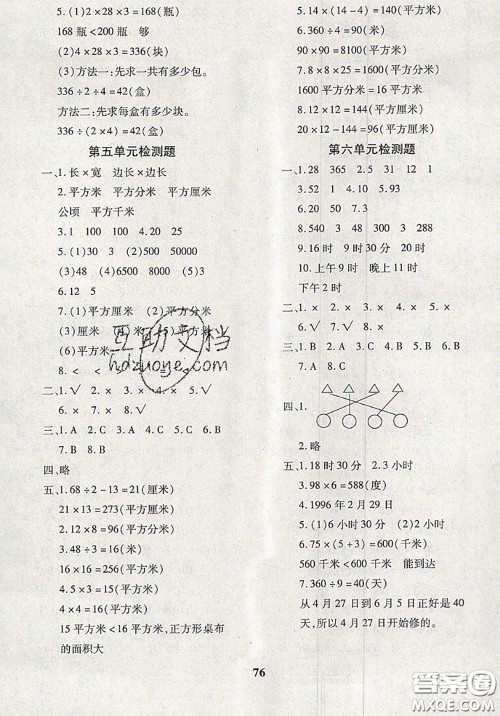 5.(1)2×28×3=168(瓶)
168瓶<200瓶　够
(2)4×28×3=336(块)
(3)方法一:先求一共有多少包。
336÷2÷4=42(盒)
方法二:先求每盒有多少块。
336÷(2×4)=42(盒)
第五单元检测题
一、1.长×宽　边长×边长
2.平方米　平方分米　平方厘米
公顷　平方千米
3.1　4.100　100　4.20　25
5.(1)30　3　(2)500　50000
(3)48　(4)6500　(5)8000
6.12　5
7.(1)平方厘米　(2)平方分米
(3)厘米　(4)米　(5)平方米
(6)平方米
8.<
二、1.√　2.×　3.×　4.×　5.√
6.×　7.×　8.√
三、1.A　2.C　3.C　4.A　5.A　6.A
7.B　8.B
四、略
五、1.68÷2-13=21(厘米)
21×13=273(平方厘米)
2.12×8=96(平方米)
3.48÷3=16(米)
16×16=256(平方米)
4.5×3=15(平方米)
4×4=16(平方米)
15平方米<16平方米,正方形桌布
的面积大
5.14×(14÷2)=98(平方米)
6.60×60=3600(平方厘米)
90×90=8100(平方厘米)
7.8×8×25=1600(平方分米)
1600平方分米=16平方米
8.12×12=144(平方厘米)
20×12-144=96(平方厘米)
第六单元检测题
一、1.28　365　2.5　11　3.51
4.29　52　5.1.3　1.2
6.20　50　7.3
8.540　3　48　300　3　288
9.16时　9时30分　21时
10.上午9时　晚上11时
下午2时
二、1.×　2.×　3.×　4.×　5.×
6.√　7.√　8.×
三、1.A　2.B　3.C　4.A　5.B　6.C
7.B　8.C
四、1.
2.略
五、1.18时30分　2.3小时
3.98×6=588(度)
4.1996年2月29日
5.(1)6小时30分　(2)2小时
6.75×(5+3)=600(千米)
560千米<600千米　能到达
7.360÷9=40(天)
从4月27日到6月5日正好是40
天,所以从4月27日开始修的。
互助文档
hdzuoye.com
76
答案圈
MXQE.COM